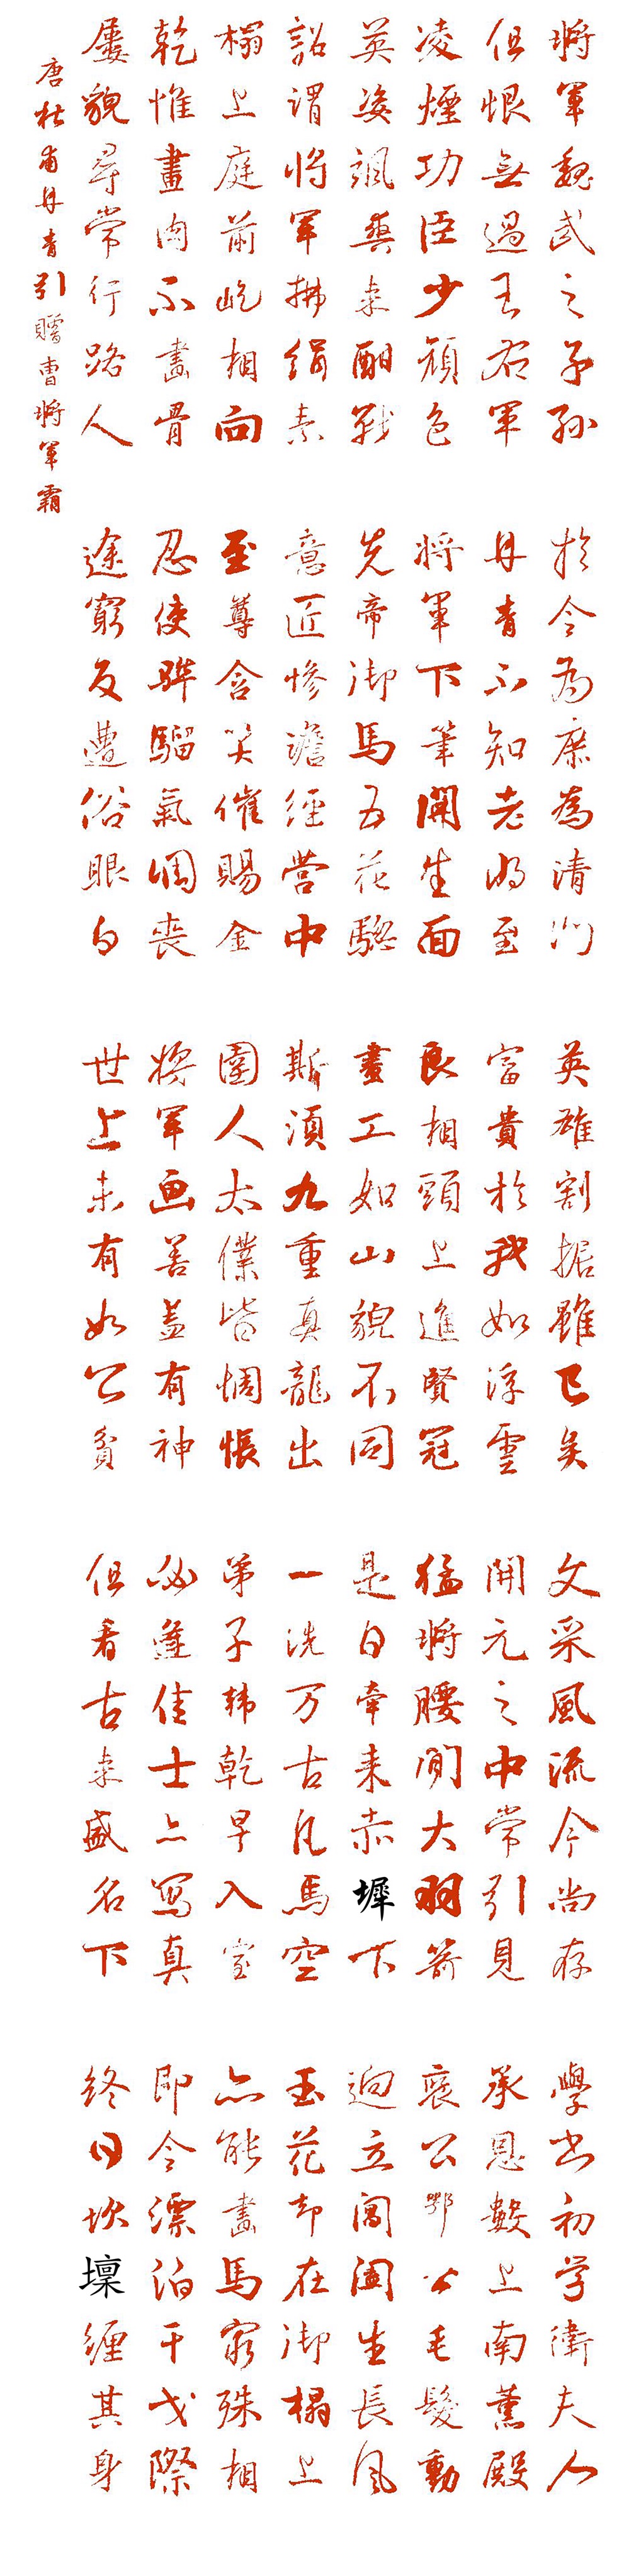 將軍魏武之子孫
於今為庶為清門
英雄割據雖已矣
文采風流今尚存
學書初學衛夫人
但恨無過王右軍
丹青不知老將至
富貴於我如浮雲
開元之中常引見
承恩數上南薰殿
凌煙功臣少顏色
將軍下筆開生面
良相頭上進賢冠
猛將腰間大羽箭
褒公鄂公毛髮動
英姿颯爽來酣戰
先帝御馬五花驄
畫工如山貌不同
是日牽來赤墀下
迥立閶闔生長風
詔謂將軍拂絹素
意匠慘澹經營中
斯須九重真龍出
一洗万古凡馬空
玉花却在御榻上
榻上庭前屹相向
至尊含笑催賜金
圉人太僕皆惆悵
弟子韩乾早入室
亦能畫馬窮殊相
乾惟畫肉不畫骨
忍使驊騮氣凋喪
將軍画善蓋有神
必逢佳士亦寫真
即今漂泊干戈際
屢貌尋常行路人
途窮反遭俗眼白
世上未有如公貧
但看古來盛名下
終日坎壈纏其身
唐杜甫丹青引贈曹將軍霸